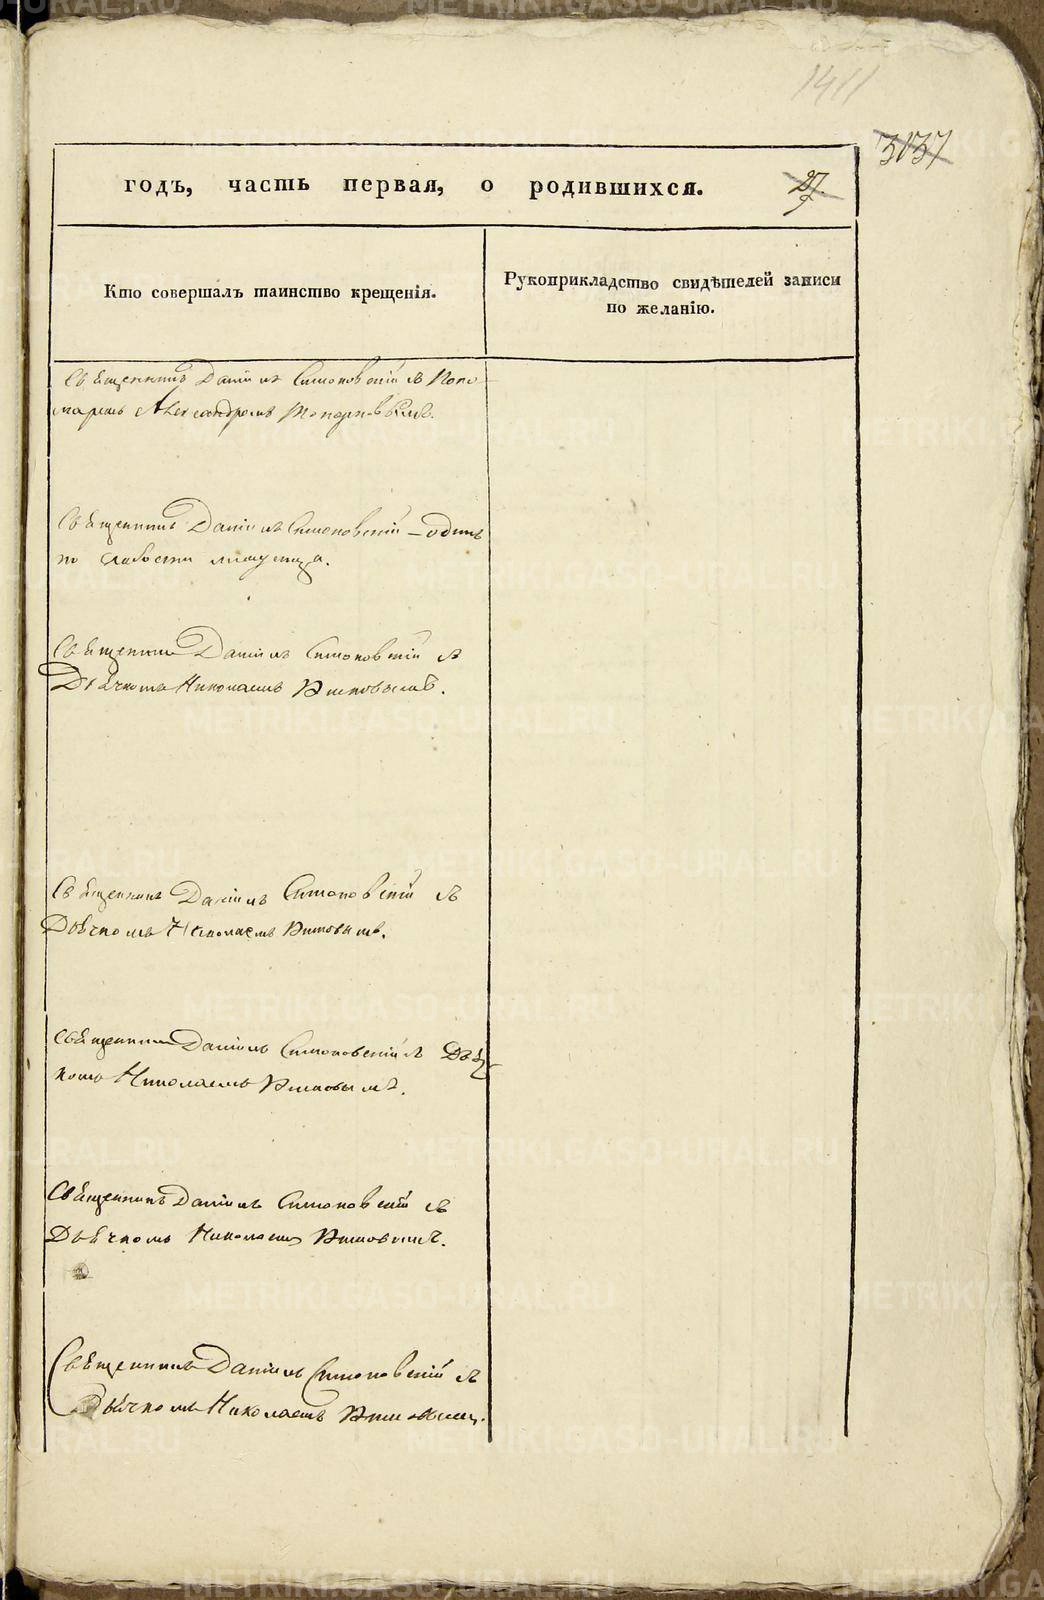 1411
3037
годъ, часть первая, о родившихся. 27.
Кто совершалъ таинство крещенія.
Рукоприкладство свидѣтелей записи
по желанію.
Священникъ Даніилъ Симоновскій съ Поно-
маремъ Александромъ
Священникъ Даніилъ Симоновскій – одинъ
по слабости младенца.
Священникъ Даніилъ Симоновскій съ
Дьячкомъ Николаемъ
Священникъ Даніилъ Симоновскій съ
Дьячкомъ Николаемъ
Священникъ Даніилъ Симоновскій съ Дьяч-
комъ Николаемъ
Священникъ Даніилъ Симоновскій съ
Дьячкомъ Николаемъ
Священникъ Даніилъ Симоновскій съ
Дьячкомъ Николаемъ
METRIKI.GASO-URAL.RU